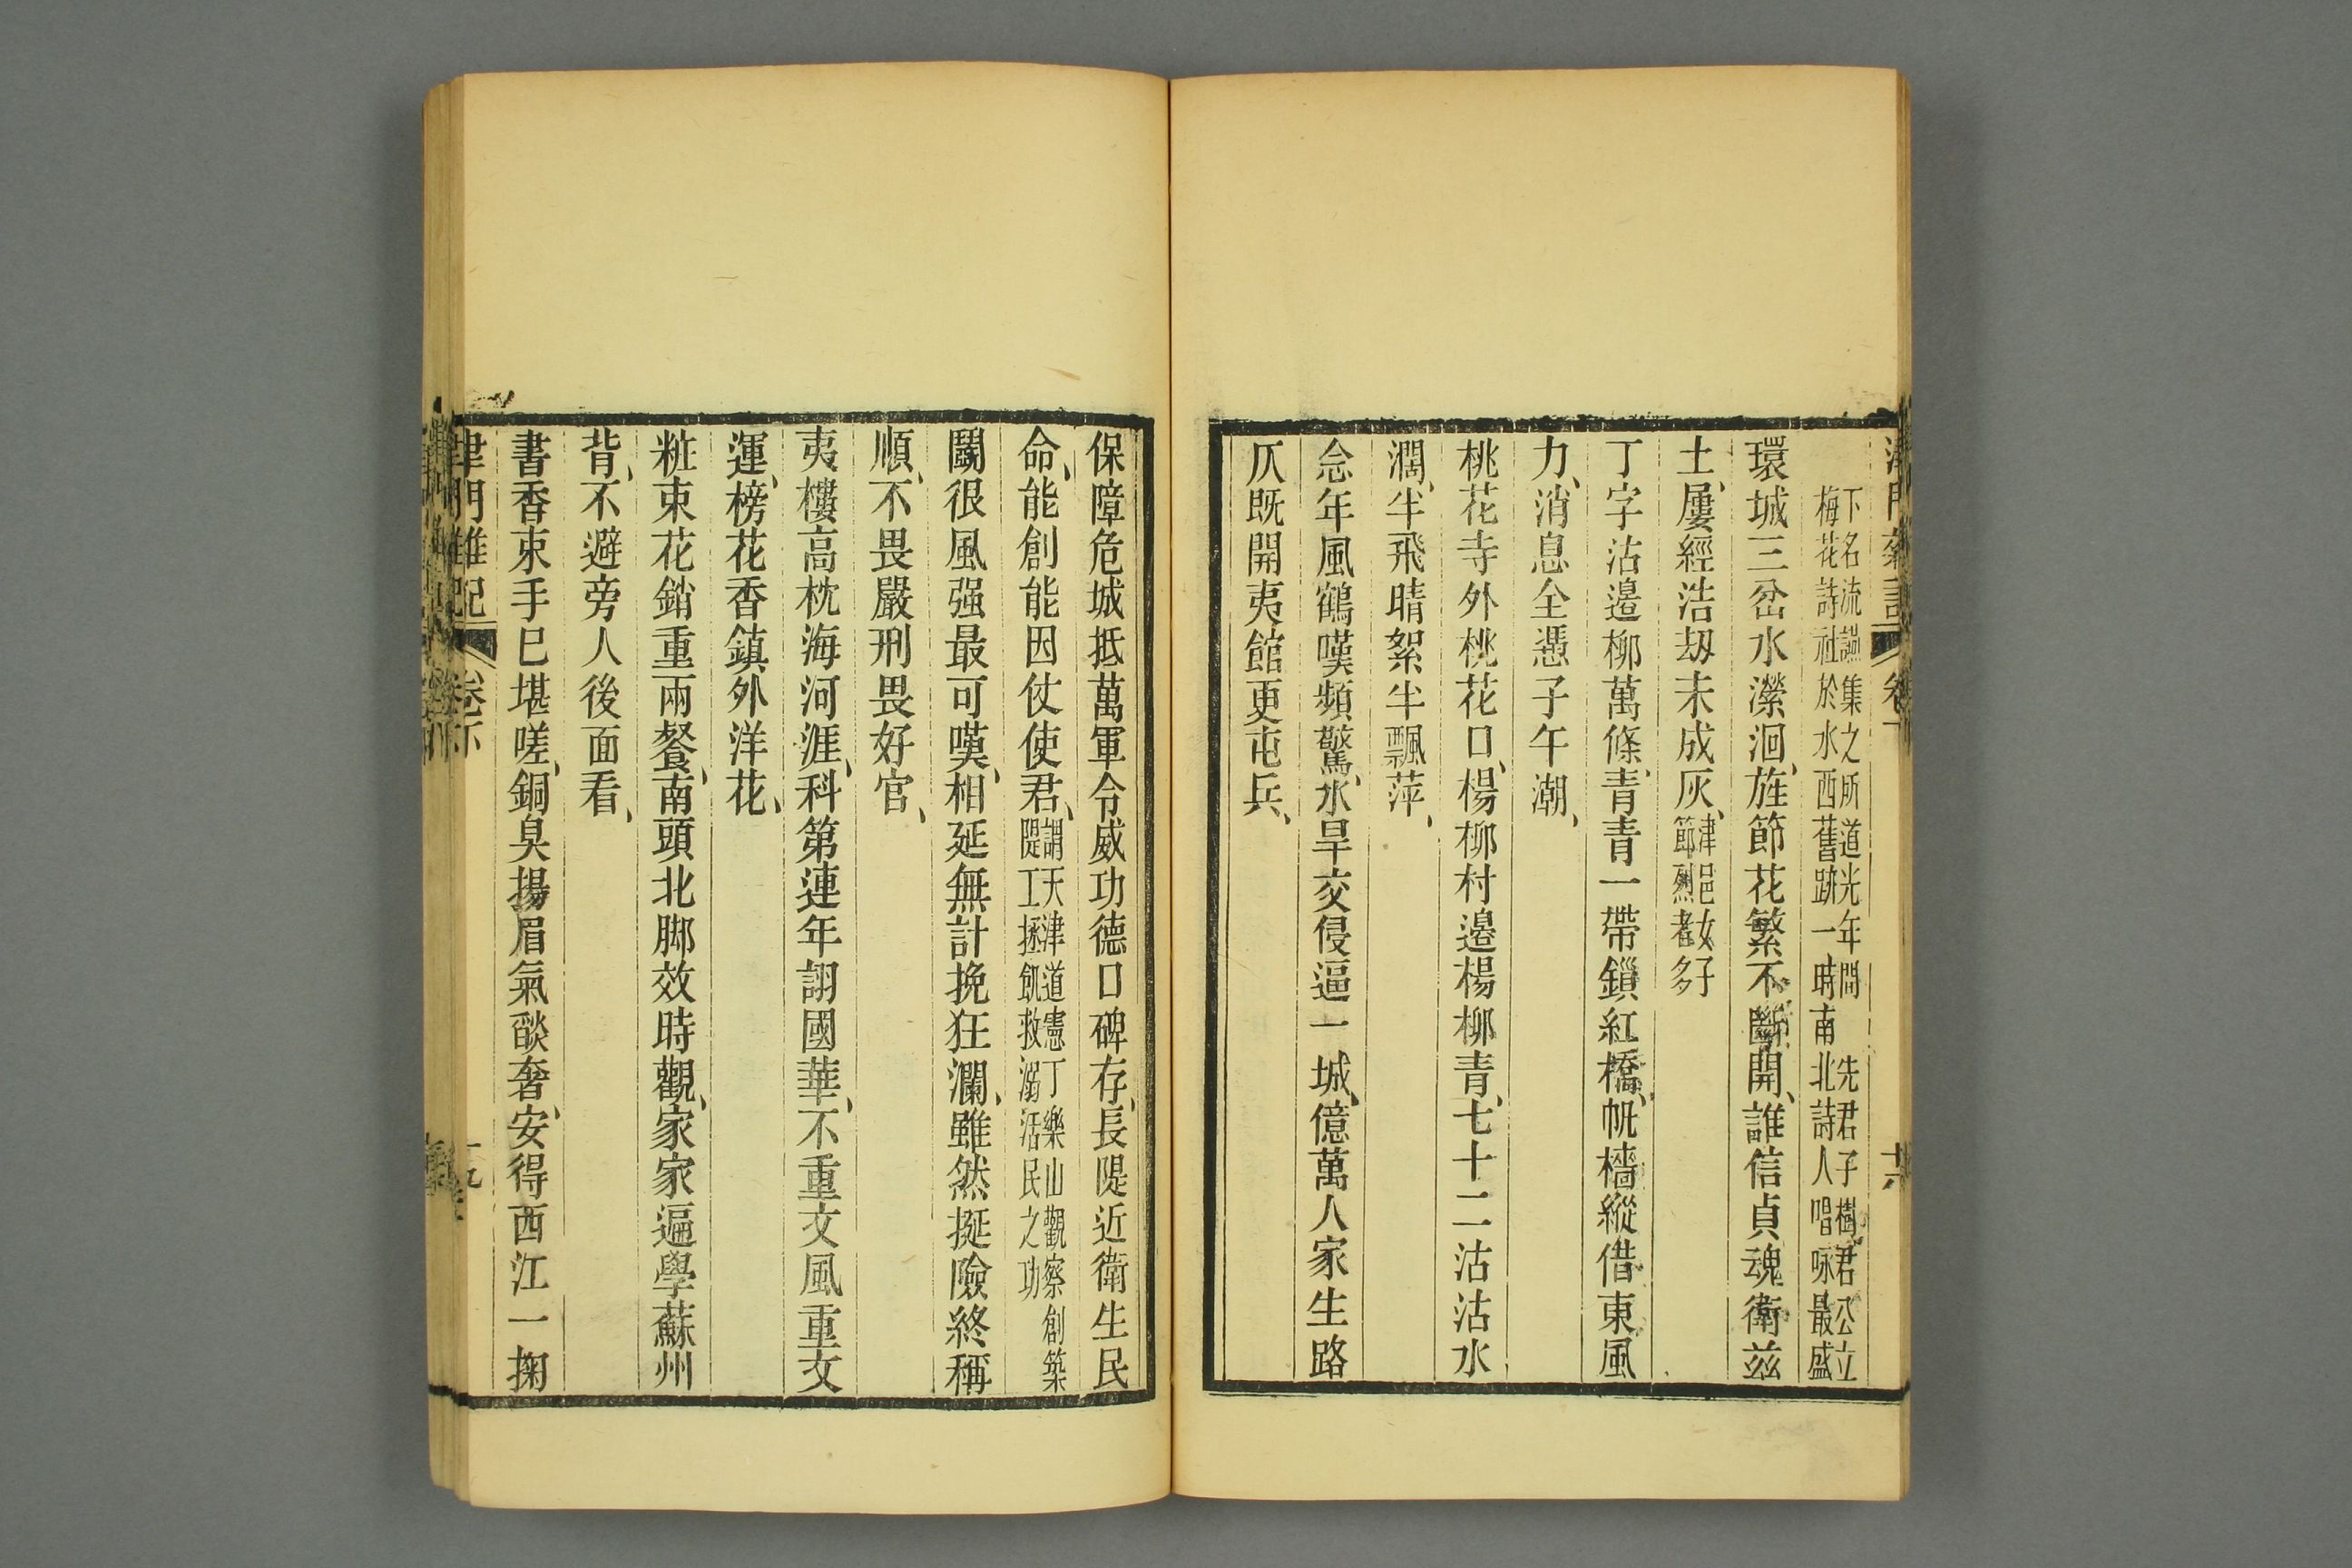 津門雜記 卷下
下名流讌集之所道光年間 先君子樹君公立
梅花詩社於水西舊跡一時南北詩人唱咏最盛
環城三岔水瀠洄、旌節花繁不斷開、誰信貞魂衛兹
土、屢經浩刼未成灰、津邑女子
節烈者多
丁字沽邉柳萬條、青青一帶鎖紅橋、帆檣縱借東風
力、消息全憑子午潮、
桃花寺外桃花口、楊柳村邉楊柳青、七十二沽沽水
濶、半飛晴絮半飄萍、
念年風鶴嘆頻驚、水旱交侵逼一城、億萬人家生路
仄、既開夷館更屯兵、
保障危城抵萬軍、令威功德口碑存、長隄近衛生民
命、能創能因仗使君、謂天津道憲丁樂山觀察創築
隄工拯飢救溺活民之功
鬭很風强最可嘆、相延無計挽狂瀾、雖然挺險終稱
順、不畏嚴刑畏好官、
夷樓高枕海河涯、科第連年詡國華、不重文風重文
運、榜花香鎮外洋花、
粧束花銷重兩餐、南頭北脚效時觀、家家遍學蘇州
背、不避旁人後面看、
書香束手已堪嗟、銅臭揚眉氣燄奢、安得西江一掬
津門雜記 卷下